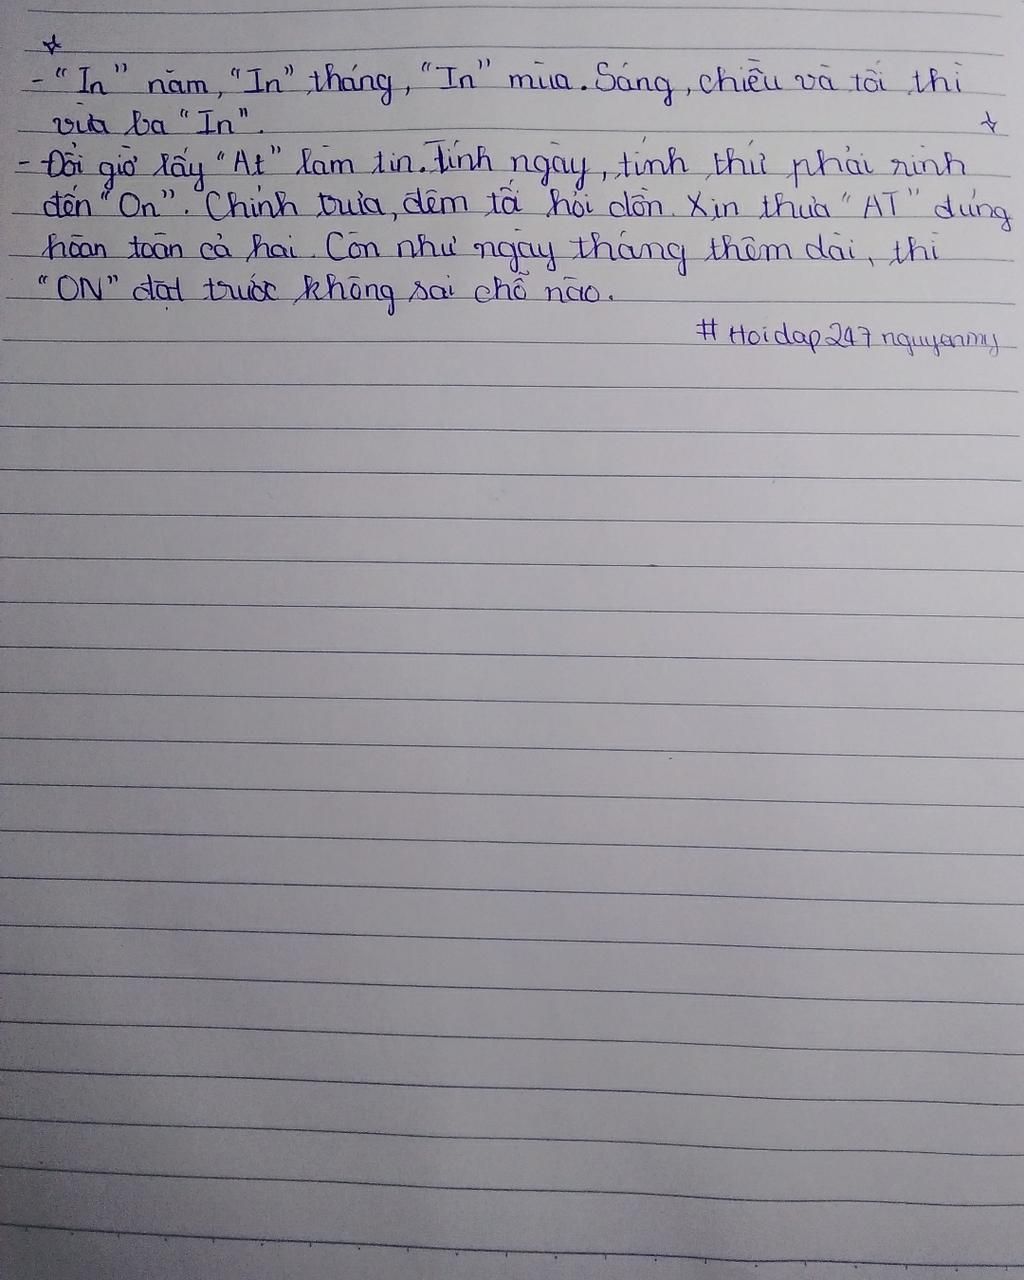 - "In" năm, "In" tháng, "In" mùa. Sáng, chiều và tối thì
vừa ba "In".
- Đổi giờ lấy "At" làm tin. Tính ngày, tính thứ phải rinh
đến "On". Chính trưa, đêm tối hỏi dồn. Xin thưa "AT" đúng
hoàn toàn cả hai. Còn như ngày tháng thêm dài, thì
"ON" đặt trước không sai chỗ nào.
# Hoidap247nguyenmy